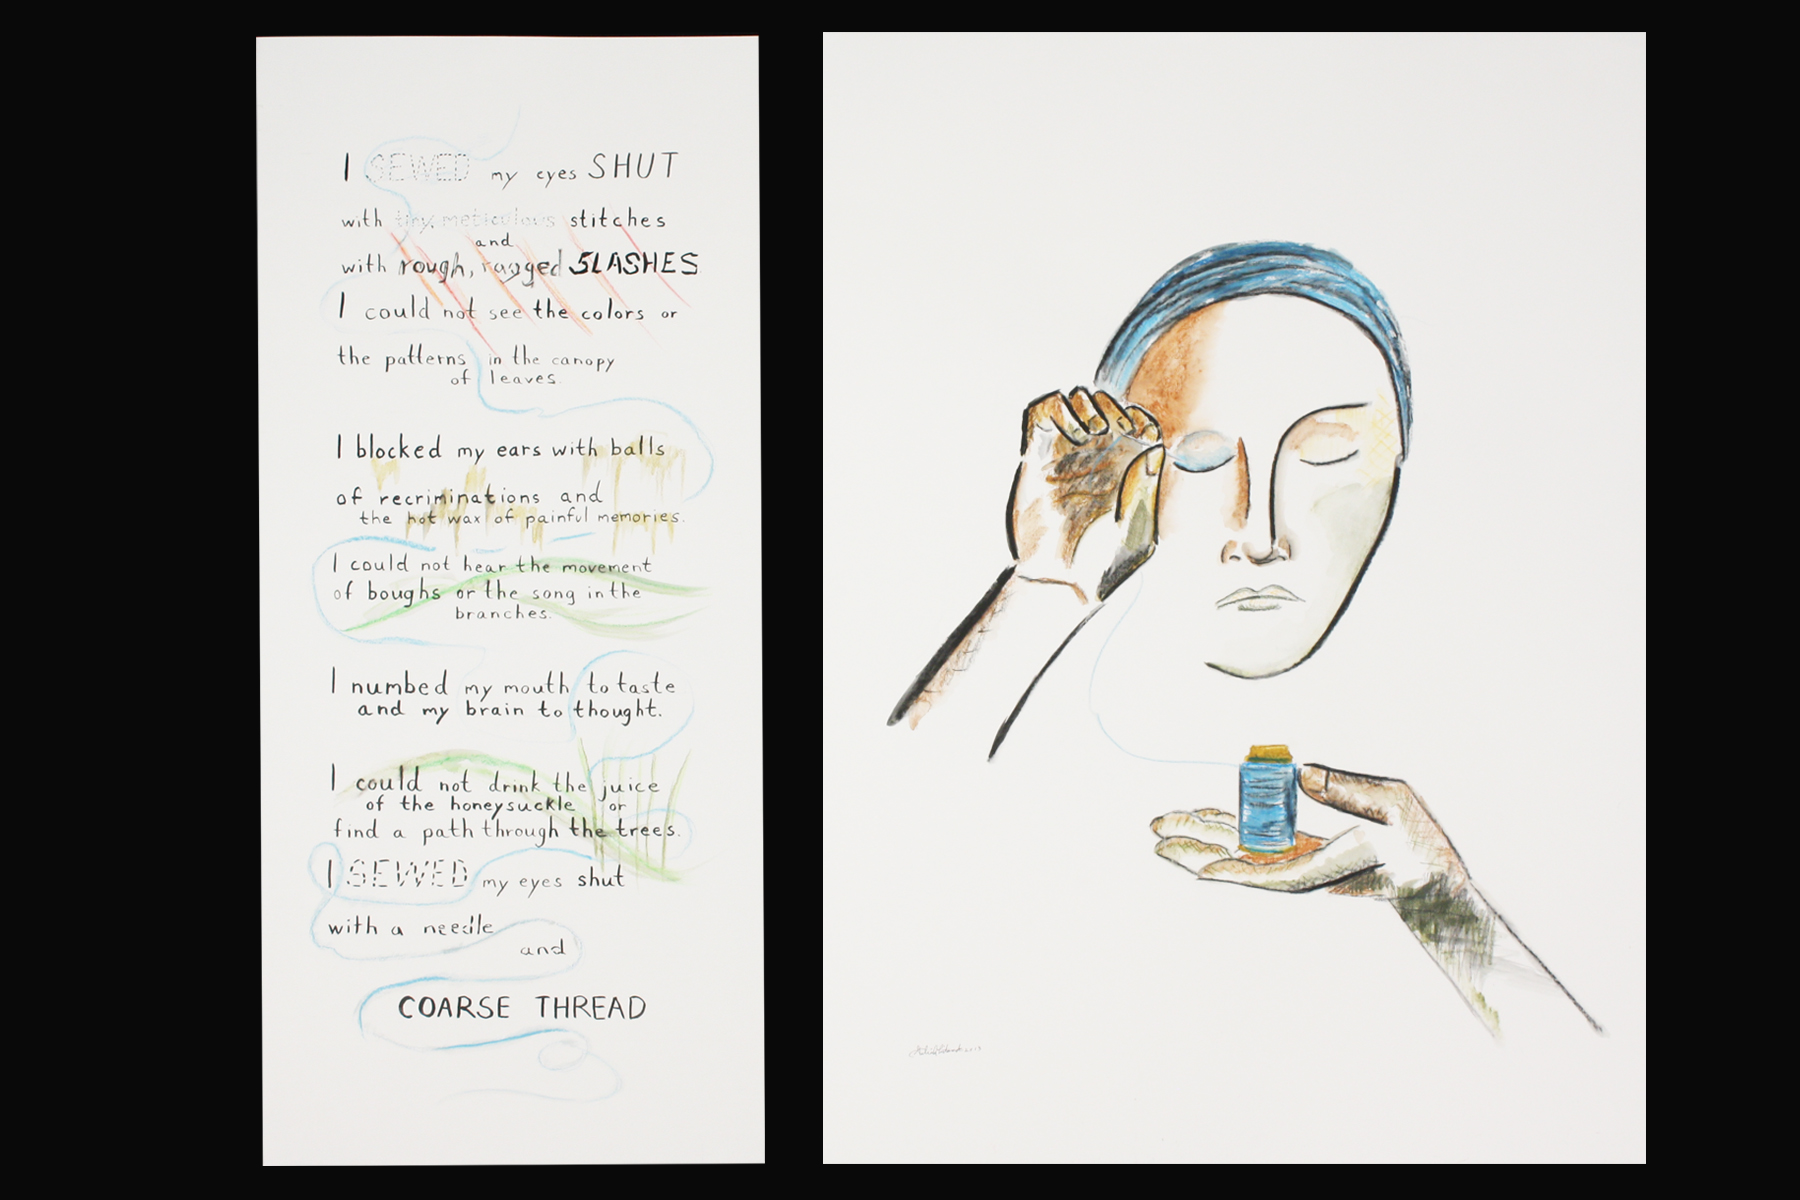 I SEWED my eyes SHUT
with tiny, meticulous stitches
and
with rough, ragged SLASHES
I could not see the colors or
the patterns in the canopy
of leaves.
I blocked my ears with balls
of recriminations and
the hot wax of painful memories.
I could not hear the movement
of boughs or the song in the
branches.
I numbed my mouth to taste
and my brain to thought.
I could not drink the juice
of the honeysuckle or
find a path through the trees.
I SEWED my eyes shut
with a needle
and
COARSE THREAD